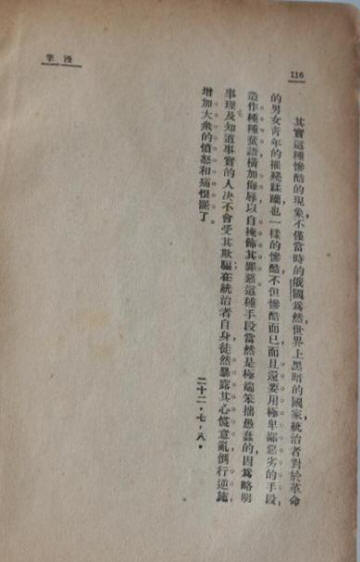 116
漫筆
其實這種慘酷的現象，不僅當時的俄國爲然，世界上黑暗的國家，統治者對於革命
的男女青年的摧殘蹂躪也一樣的慘酷，不但慘酷而已，而且還要用極卑鄙惡劣的手段，
造作種種蜚語，橫加侮辱，以自掩飾其罪惡。這種手段當然是極端笨拙愚蠢的，因爲略明
事理及知道事實的人決不會受其欺騙，在統治者自身徒然暴露其心慌意亂，倒行逆施，
增加大衆的憤怒和痛恨罷了。
二十二·七·八·